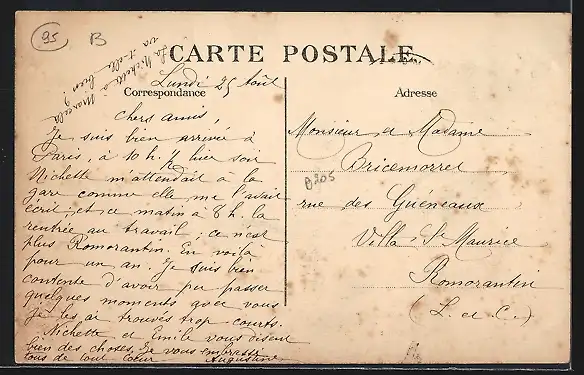 95
B
La Nichette à Marcelle
va-t-elle bien ?
CARTE POSTALE
Lundi 25 Août
Correspondance
Adresse
Chers amis,
Je suis bien arrivée à
Paris, à 10 h. ¼ hier soir
Nichette m'attendait à la
gare comme elle me l'avait
écrit; et ce matin à 8 h. la
rentrée au travail; ce n'est
plus Romorantin. En voilà
pour un an. Je suis bien
contente d'avoir pu passer
quelques moments avec vous
je les ai trouvés trop courts.
Nichette et Emile vous disent
bien des choses. Je vous embrasse
tous de tout cœur Augustine
Monsieur et Madame
Bricemorret
rue des Guéneaux
Villa St Maurice
Romorantin
(L. et C.)